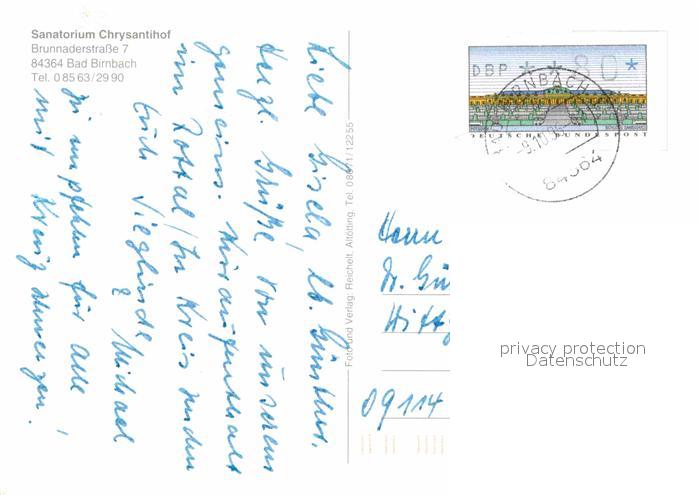 Sanatorium Chrysantihof
Brunnaderstraße 7
84364 Bad Birnbach
Tel. 0 85 63 / 29 90
Liebe Gisela, lb. Günther,
Herzl. Grüße von unserem
gemeins. Kuraufenthalt
im Rottal/Inn Kreis senden
Euch Sieglinde
& Michael
Zu empfehlen für alle
mit
Foto und Verlag: Reichelt, Altötting, Tel. 0 86 71/122 55
DBP * * 80 *
DEUTSCHE BUNDESPOST
BIRNBACH
84364
Herrn
Dr. Gü
09114
privacy protection
Datenschutz